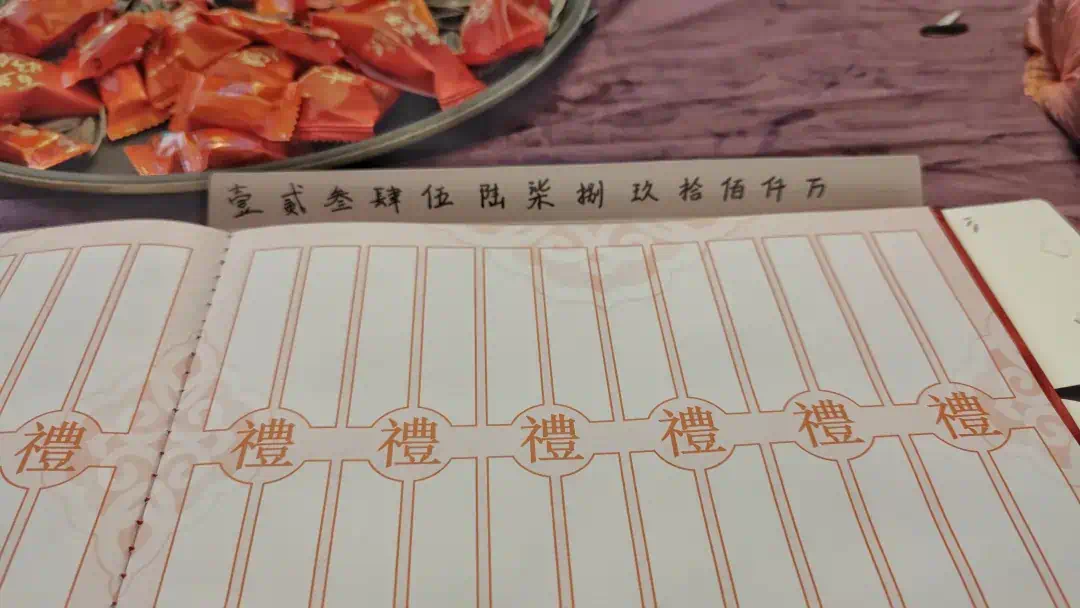 壹贰叁肆伍陆柒捌玖拾佰仟万
禮禮禮禮禮禮禮